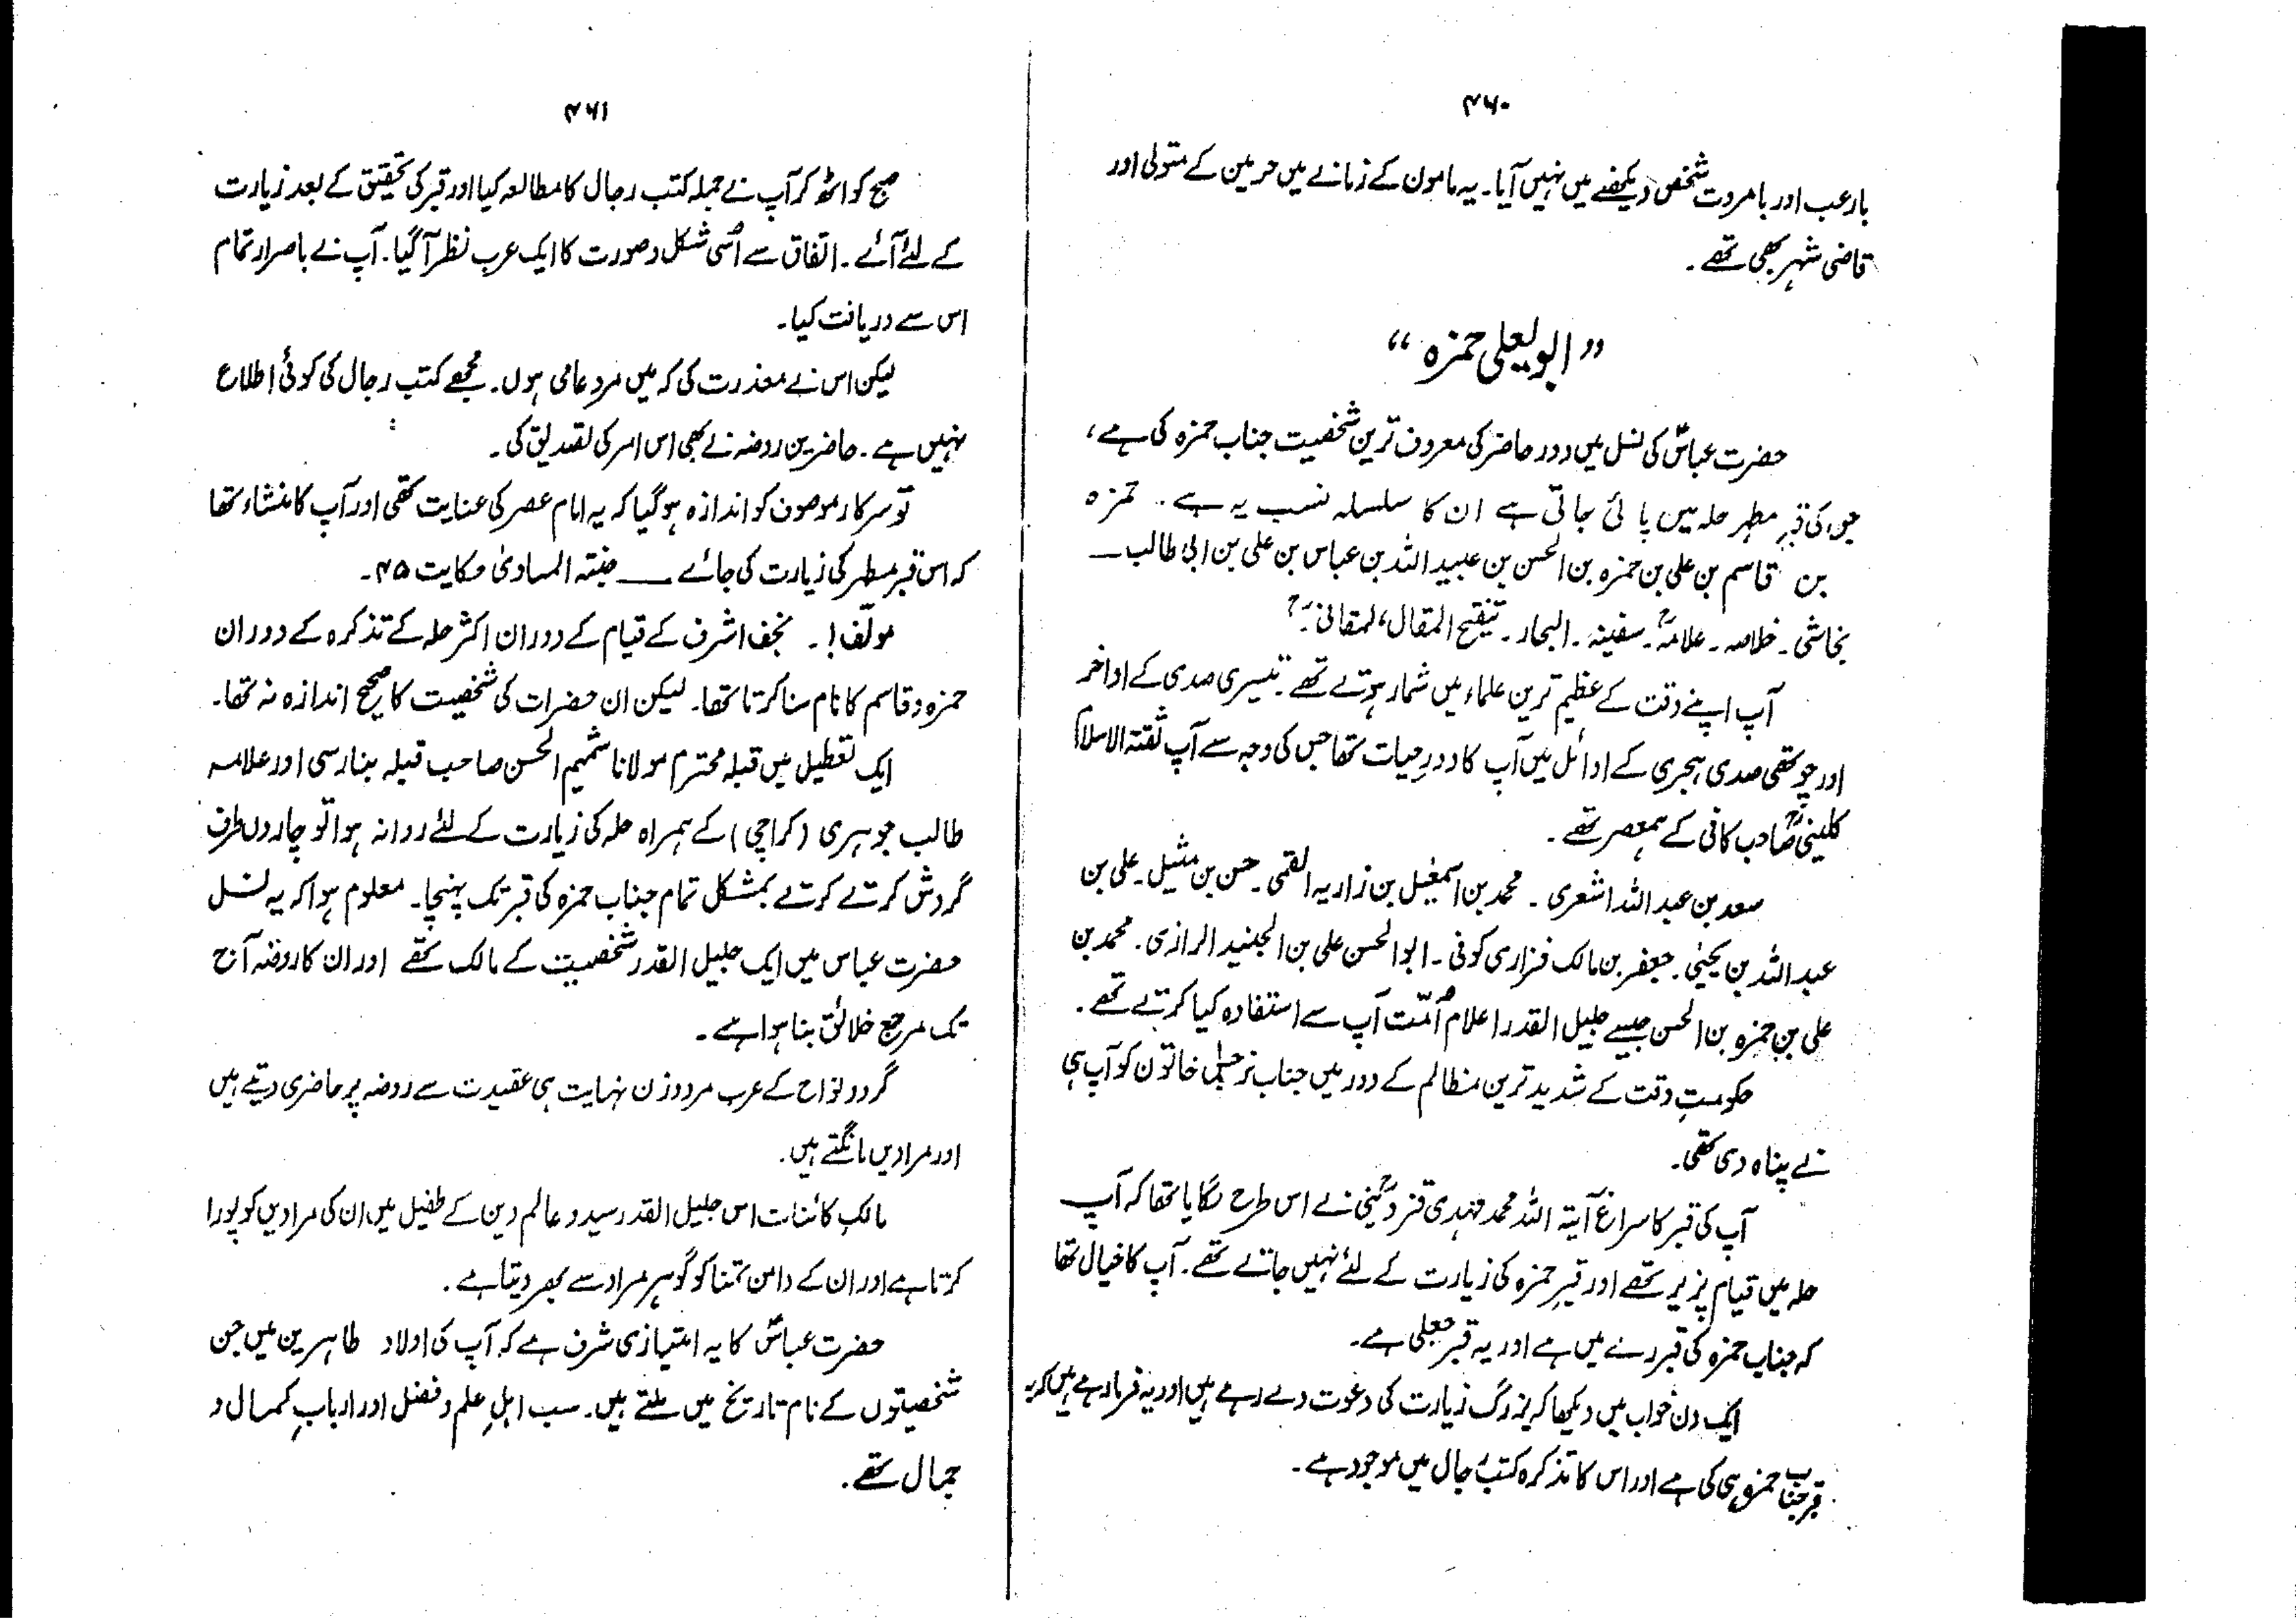 ۴۶۰
بارعب اور بامروت شخص دیکھنے میں نہیں آیا۔ یہ مامون کے زمانے میں حرمین کے متولی اور
قاضی شہر بھی تھے۔
”ابویعلی حمزہ“
حضرت عباسؑ کی نسل میں دور حاضر کی معروف ترین شخصیت جناب حمزہ کی ہے،
جن کی قبرِ مطہر حلہ میں پائی جاتی ہے ان کا سلسلہ نسب یہ ہے۔ حمزہ
بن قاسم بن علی بن حمزہ بن الحسن بن عبید اللہ بن عباس بن علی بن ابی طالب ــــ
نجاشی۔ خلاصہ۔ علامہؒ۔ سفینہ۔ البحار۔ تنقیح المقال، لمقانیؒ۔
آپ اپنے وقت کے عظیم ترین علماء میں شمار ہوتے تھے۔ تیسری صدی کے اواخر
اور چوتھی صدی ہجری کے اوائل میں آپ کا دورِ حیات تھا جس کی وجہ سے آپ ثقتہ الاسلام
کلینیؒ صاحب کافی کے ہمعصر تھے۔
سعد بن عبد اللہ اشعری ۔ محمد بن اسمٰعیل بن زاریہ القمی۔ حسن بن مثیل۔ علی بن
عبد اللہ بن یحییٰ۔ جعفر بن مالک فزاری کوفی۔ ابوالحسن علی بن الجنید الرازی۔ محمد بن
علی بن حمزہ بن الحسن جیسے جلیل القدر اعلام اُمّت آپ سے استفادہ کیا کرتے تھے۔
حکومتِ وقت کے شدید ترین مظالم کے دور میں جناب نرجس خاتون کو آپ ہی
نے پناہ دی تھی۔
آپ کی قبر کا سراغ آیتہ اللہ محمد مہدی قزوینیؒ نے اس طرح لگایا تھا کہ آپ
حلہ میں قیام پزیر تھے اور قبرِ حمزہ کی زیارت کے لئے نہیں جاتے تھے۔ آپ کا خیال تھا
کہ جناب حمزہ کی قبر رے میں ہے اور یہ قبر جعلی ہے۔
ایک دن خواب میں دیکھا کہ بزرگ زیارت کی دعوت دے رہے ہیں اور یہ فرما رہے ہیں کہ یہ
قبر جناب حمزہ ہی کی ہے اور اس کا تذکرہ کتب رجال میں موجود ہے۔
۴۶۱
صبح کو اٹھ کر آپ نے جملہ کتب رجال کا مطالعہ کیا اور قبر کی تحقیق کے بعد زیارت
کے لئے آئے۔ اتفاق سے اُسی شکل و صورت کا ایک عرب نظر آگیا۔ آپ نے باصرار تمام
اس سے دریافت کیا۔
لیکن اس نے معذرت کی کہ میں مرد عامی ہوں۔ مجھے کتب رجال کی کوئی اطلاع
نہیں ہے۔ حاضرین روضہ نے بھی اس امر کی تصدیق کی۔
تو سرکار موصوف کو اندازہ ہوگیا کہ یہ امام عصر کی عنایت تھی اور آپ کا منشاء تھا
کہ اس قبر مطہر کی زیارت کی جائے ــــ جنتہ الماویٰ حکایت ۴۵۔
مولّف!۔ نجف اشرف کے قیام کے دوران اکثر حلہ کے تذکرہ کے دوران
حمزہ و قاسم کا نام سنا کرتا تھا۔ لیکن ان حضرات کی شخصیت کا صحیح اندازہ نہ تھا۔
ایک تعطیل میں قبلہ محترم مولانا شمیم الحسن صاحب قبلہ بنارسی اور علامہ
طالب جوہری (کراچی) کے ہمراہ حلہ کی زیارت کے لئے روانہ ہوا تو چاروں طرف
گردش کرتے کرتے بمشکل تمام جناب حمزہ کی قبر تک پہنچا۔ معلوم ہوا کہ یہ نسل
حضرت عباس میں ایک جلیل القدر شخصیت کے مالک تھے اور ان کا روضہ آج
تک مرجع خلائق بنا ہوا ہے۔
گرد و نواح کے عرب مرد و زن نہایت ہی عقیدت سے روضہ پر حاضری دیتے ہیں
اور مرادیں مانگتے ہیں۔
مالکِ کائنات اس جلیل القدر سید و عالم دین کے طفیل میں ان کی مرادیں کو پورا
کرتا ہے اور ان کے دامن تمنا کو گوہر مراد سے بھر دیتا ہے۔
حضرت عباسؑ کا یہ امتیازی شرف ہے کہ آپ کی اولاد طاہرین میں جن
شخصیتوں کے نام تاریخ میں ملتے ہیں۔ سب اہلِ علم و فضل اور اربابِ کمال و
جمال تھے۔